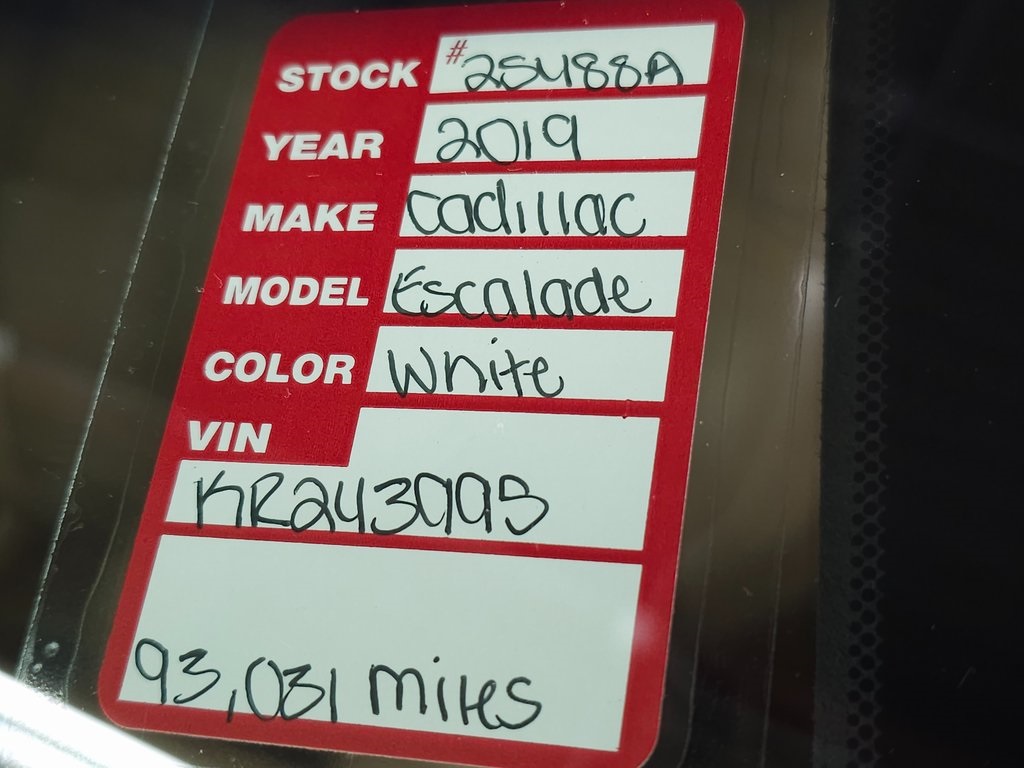 STOCK #25488A
YEAR 2019
MAKE Cadillac
MODEL Escalade
COLOR White
VIN
KR243995
93,031 miles